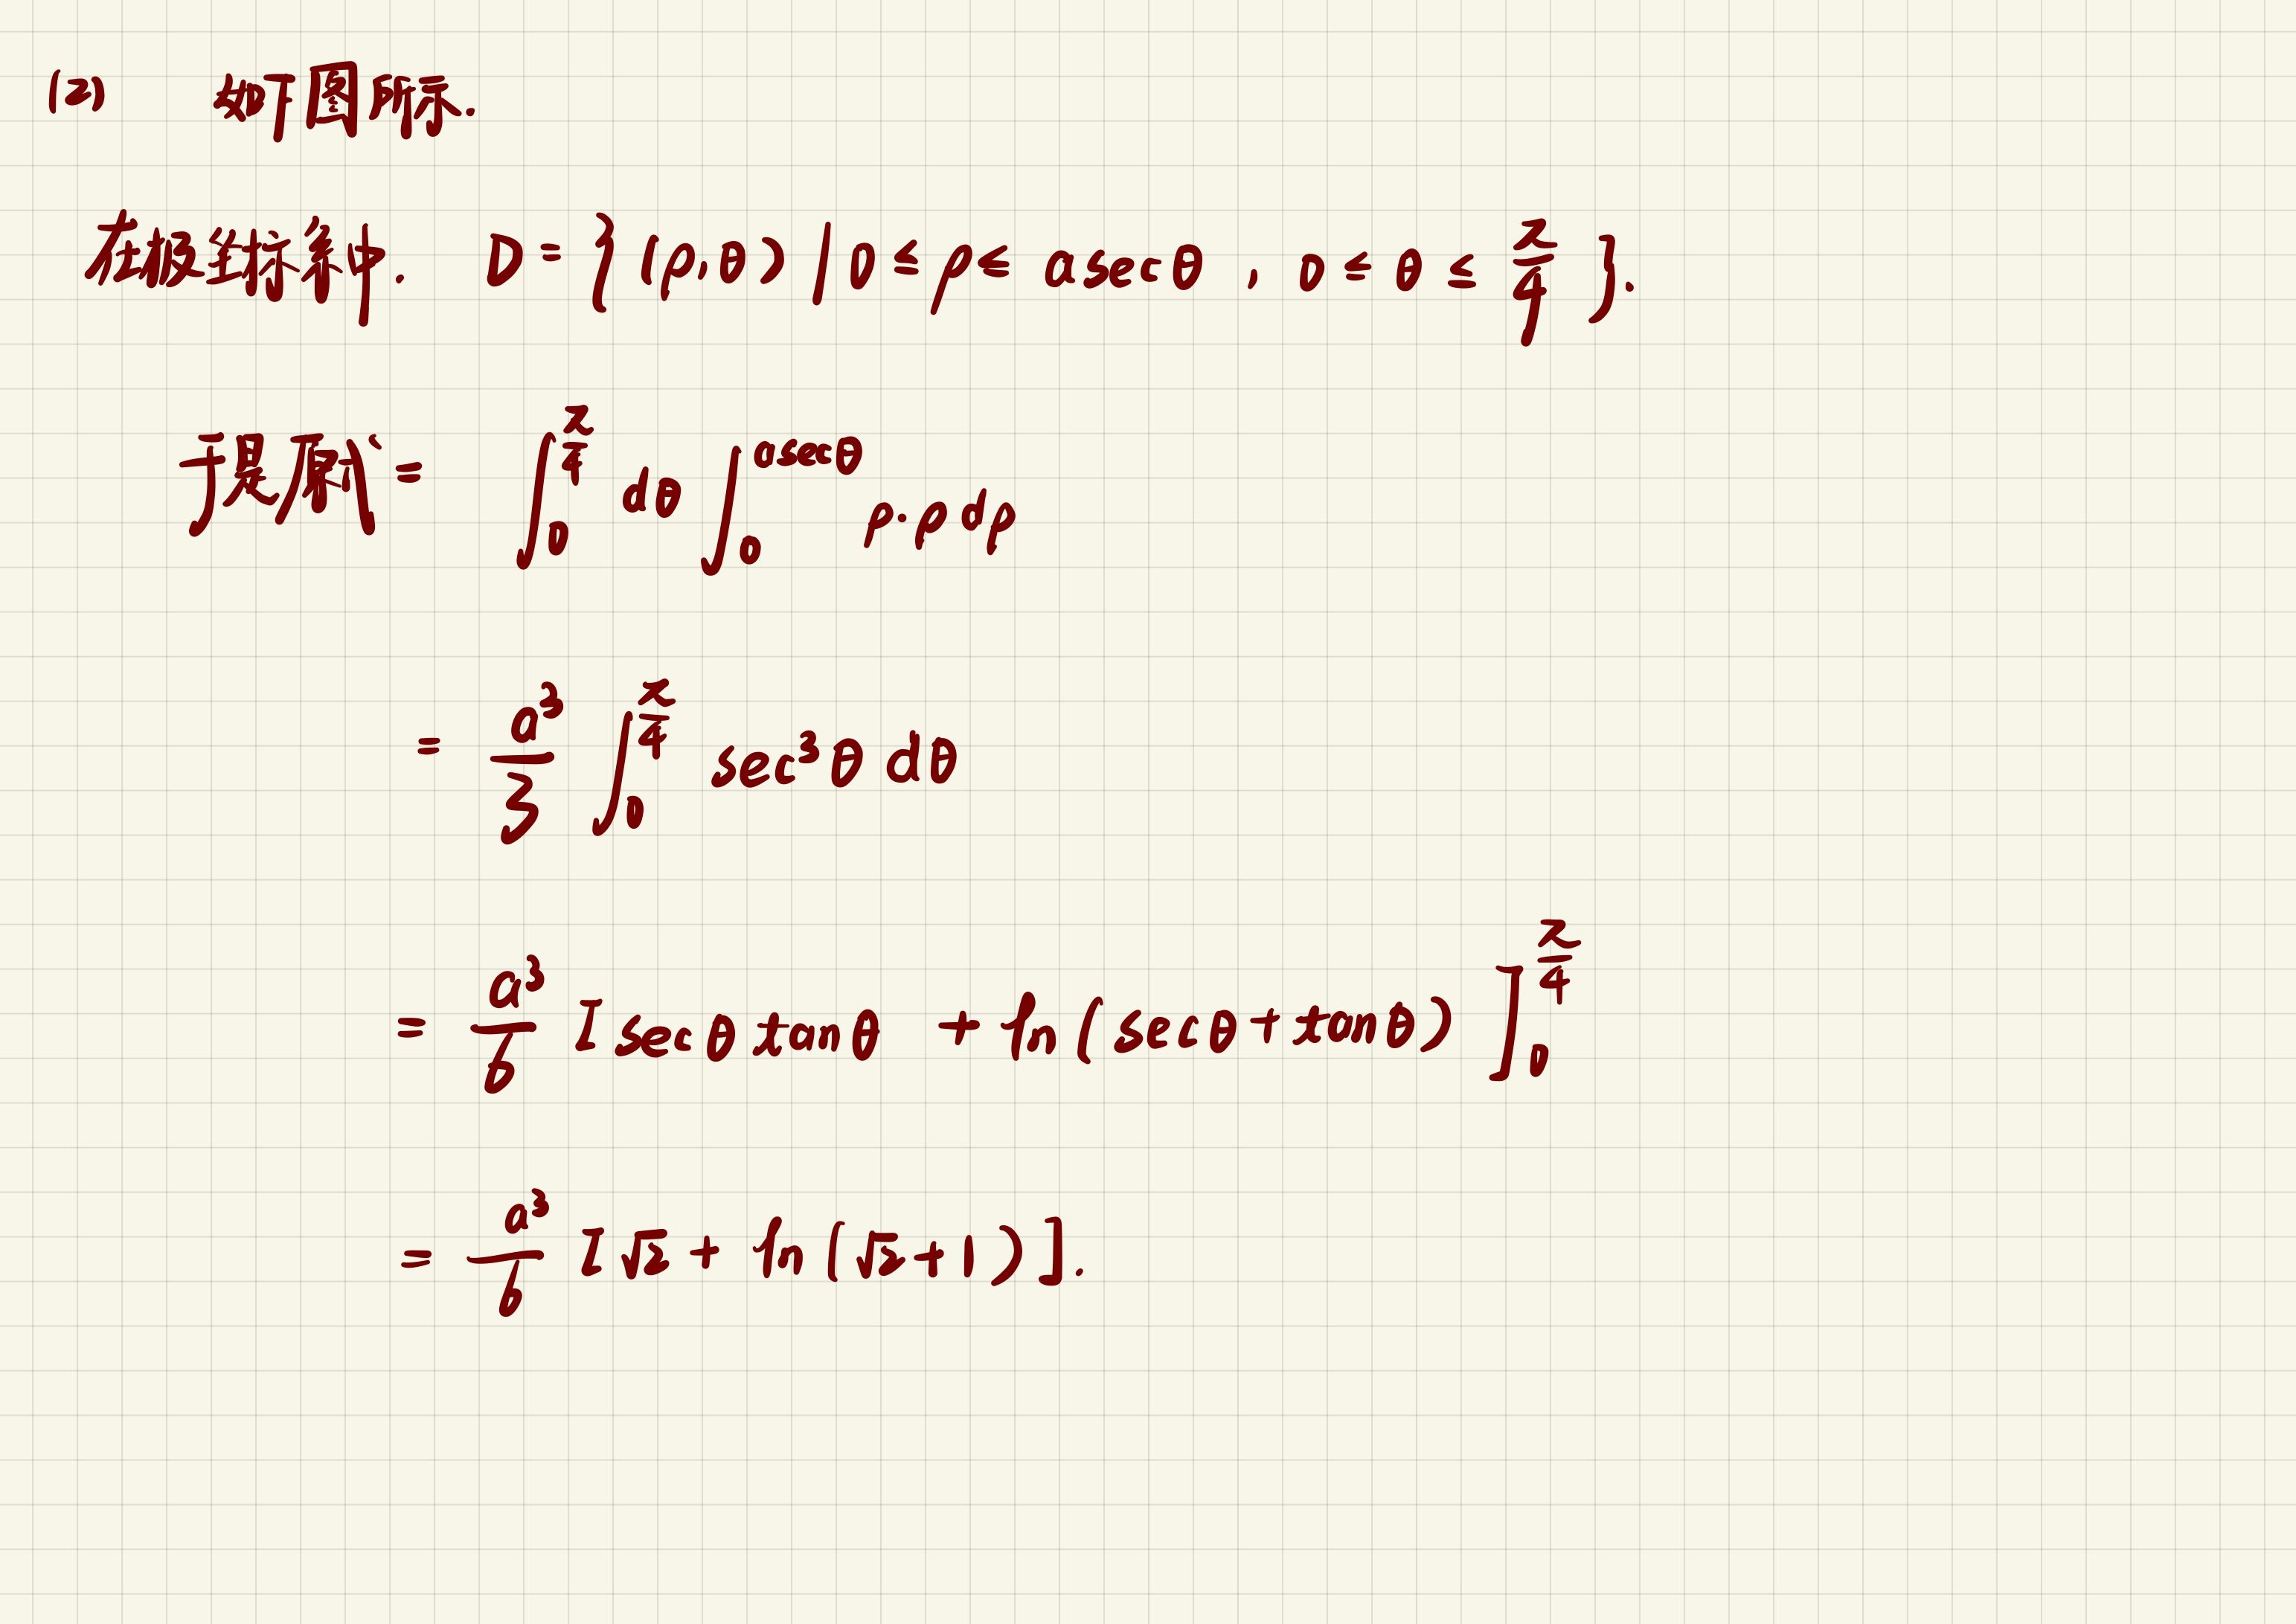 (2) 如下图所示.
在极坐标系中. D = { (ρ, θ) | 0 ≤ ρ ≤ a secθ , 0 ≤ θ ≤ π/4 }.
于是原式 = ∫_0^{π/4} dθ ∫_0^{a secθ} ρ·ρ dρ
= a³/3 ∫_0^{π/4} sec³θ dθ
= a³/6 [ secθ tanθ + ln(secθ + tanθ) ]_0^{π/4}
= a³/6 [ √2 + ln(√2 + 1) ].